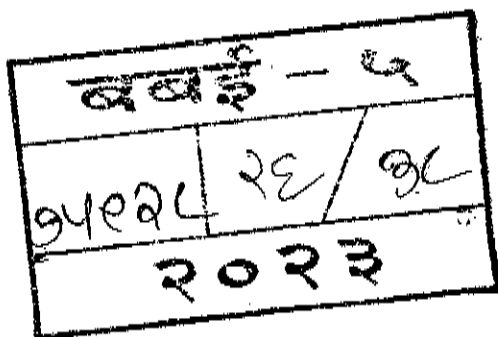 बबई - ५
७५९२८ २६ / ३८
२०२३